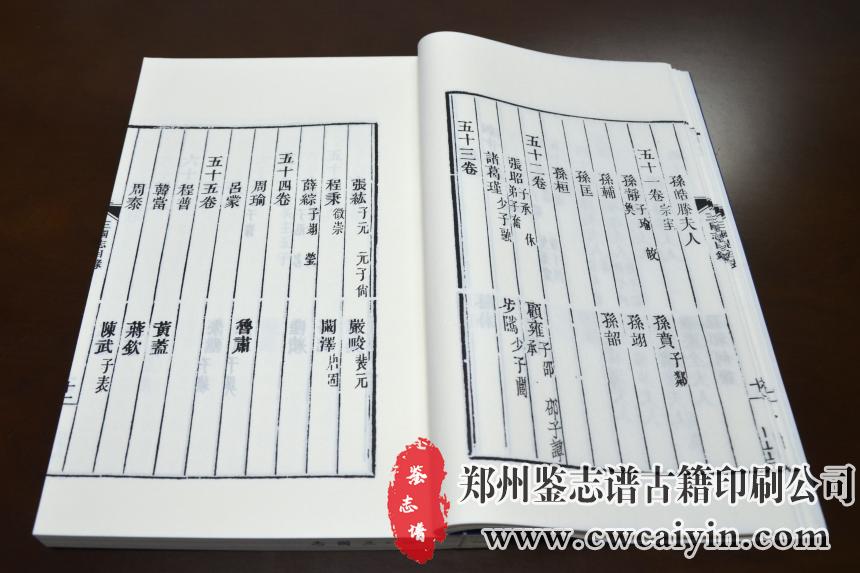 孫皓滕夫人
五十一卷 宗室
孫靜 子瑜 皎 奐
孫賁 子鄰
孫輔
孫翊
孫匡
孫韶
孫桓
五十二卷
張昭 弟子奮 子承 休
顧雍 子邵 邵子譚 承
諸葛瑾 少子融
步隲 少子闡
五十三卷
張紘 子元 元子尚
嚴畯 裴元
程秉 徵崇
闞澤 唐固
薛綜 子翊 瑩
五十四卷
周瑜
魯肅
呂蒙
五十五卷
程普
黃蓋
韓當
蔣欽
周泰
陳武 子表
三國志目錄
鉴志谱
郑州鉴志谱古籍印刷公司
www.cwcaiyin.com